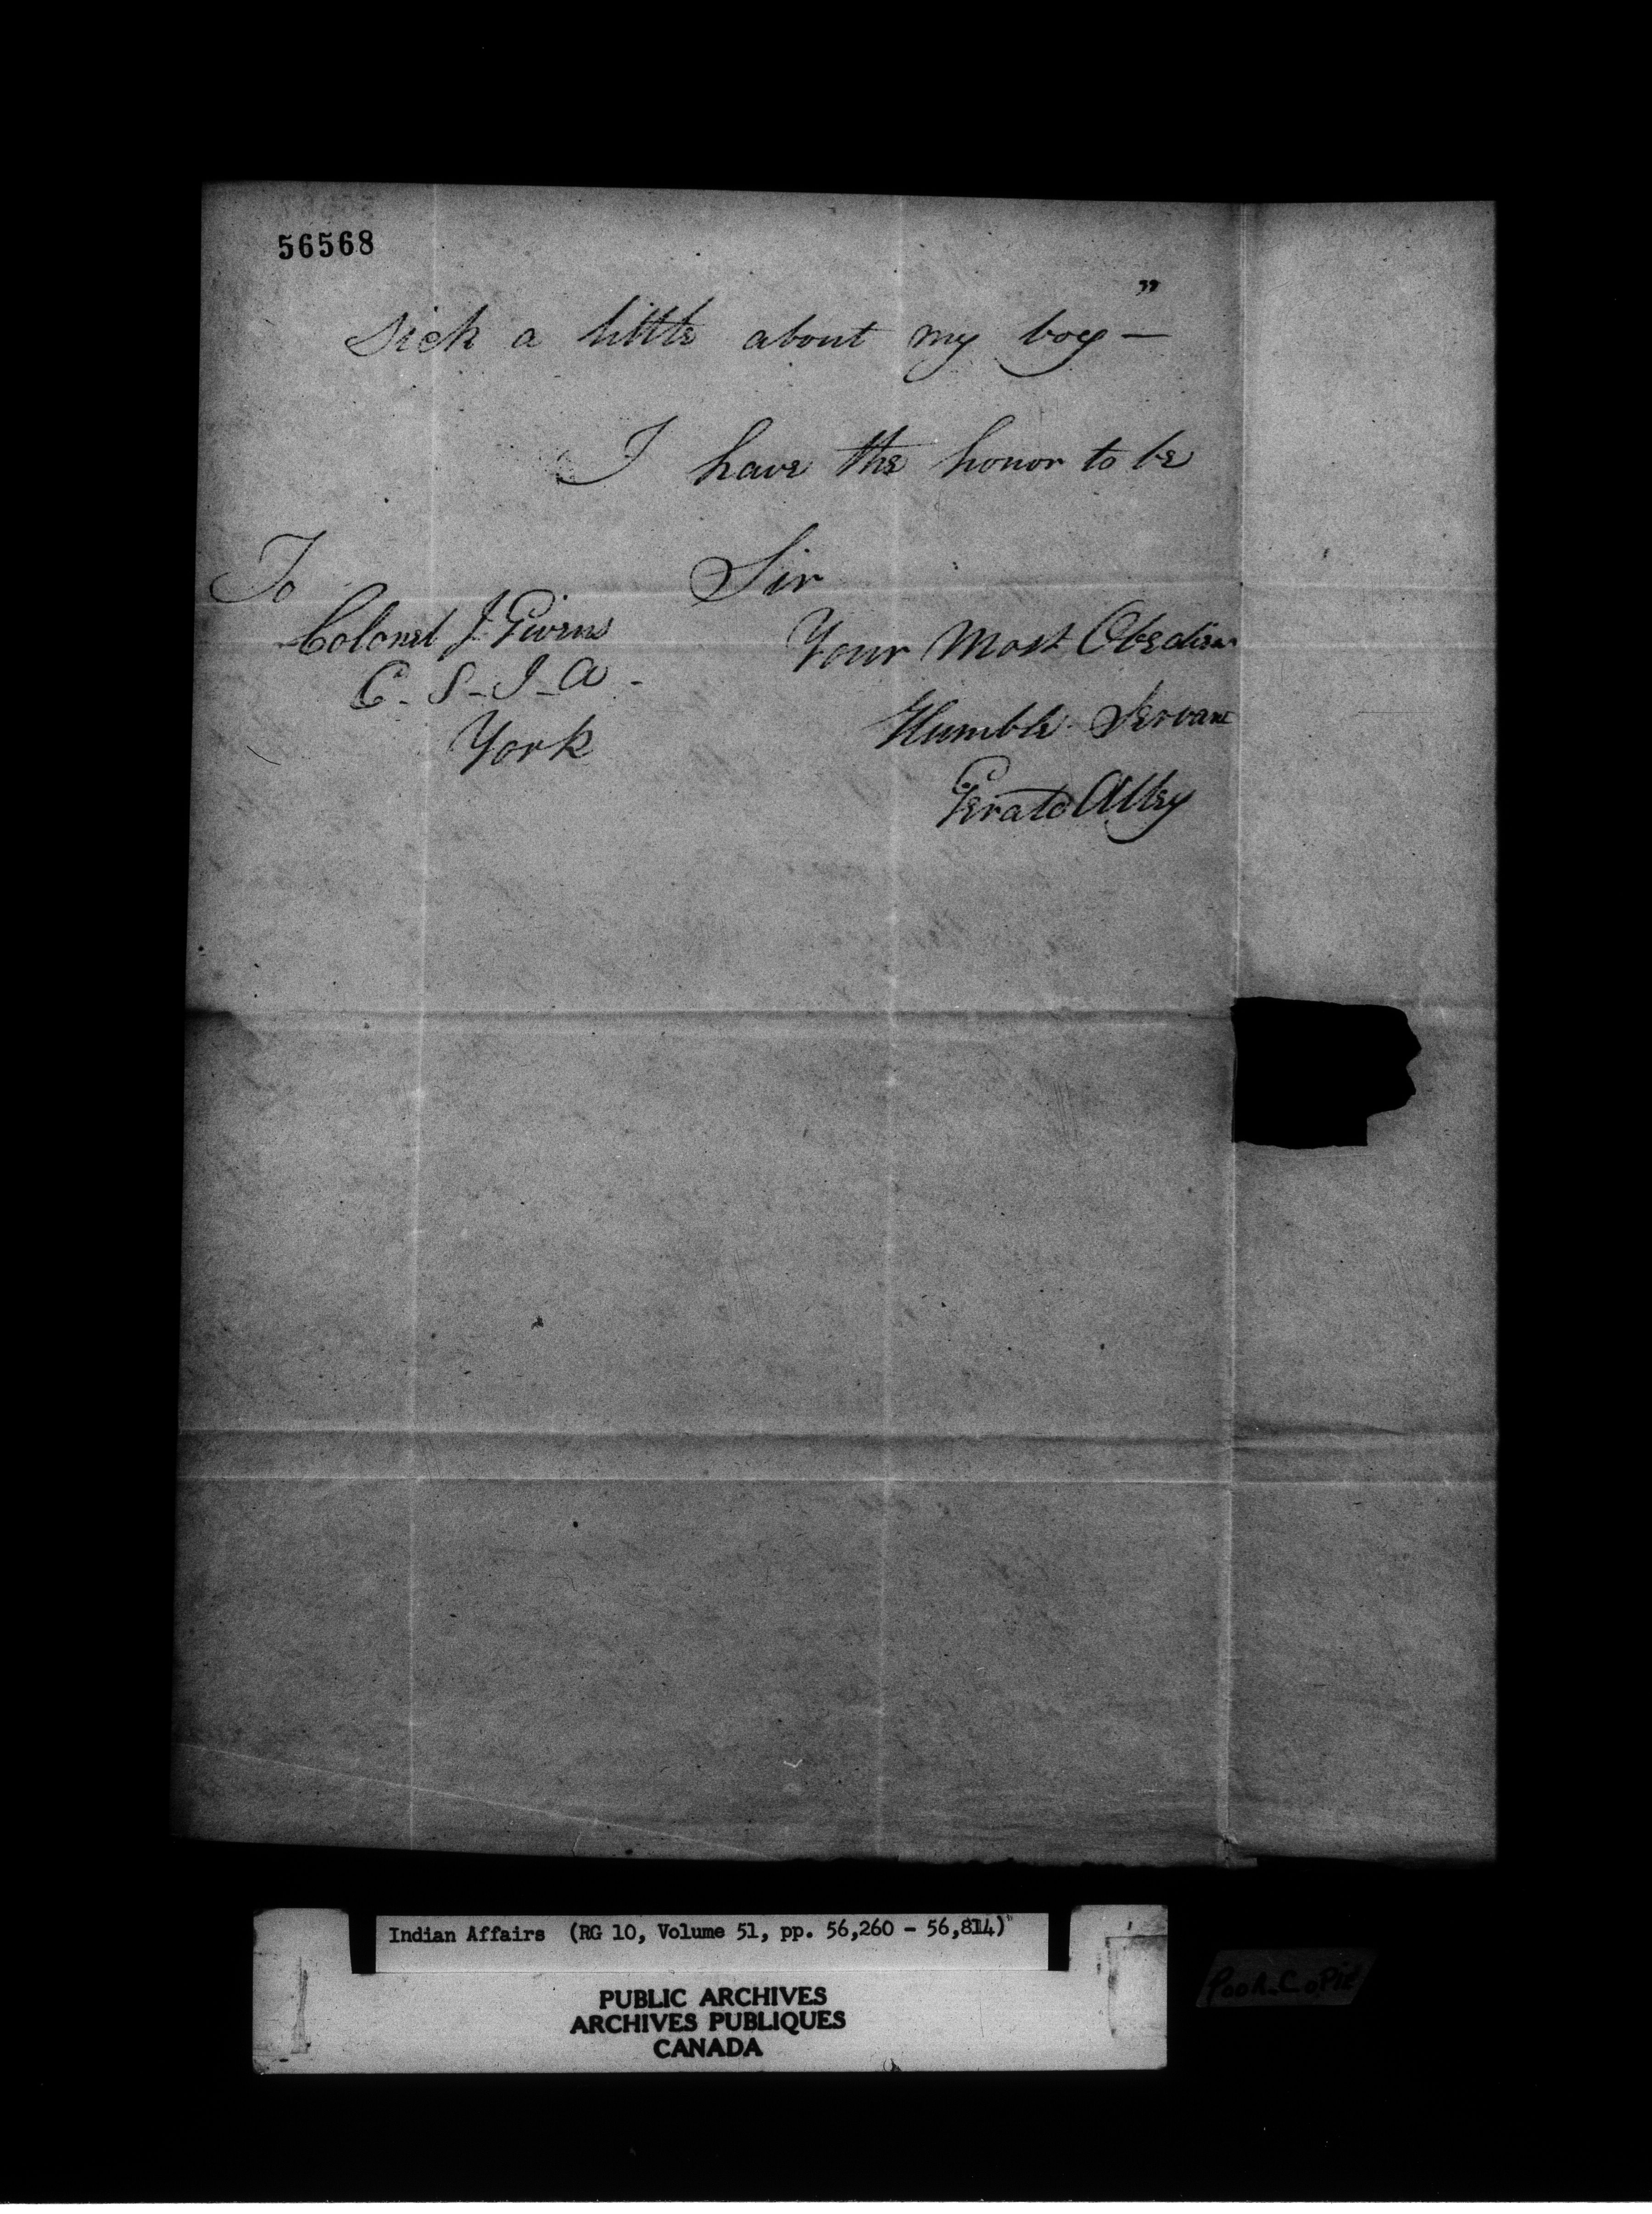 56568
sick a little about my boy — "
I have the honor to be
Sir
Your Most Obedien
Humble Servant
Gerald Alley
To
Colonel J. Givens
C - S - I - A -
York
Indian Affairs (RG 10, Volume 51, pp. 56,260 - 56,814)
PUBLIC ARCHIVES
ARCHIVES PUBLIQUES
CANADA
Poor Copie